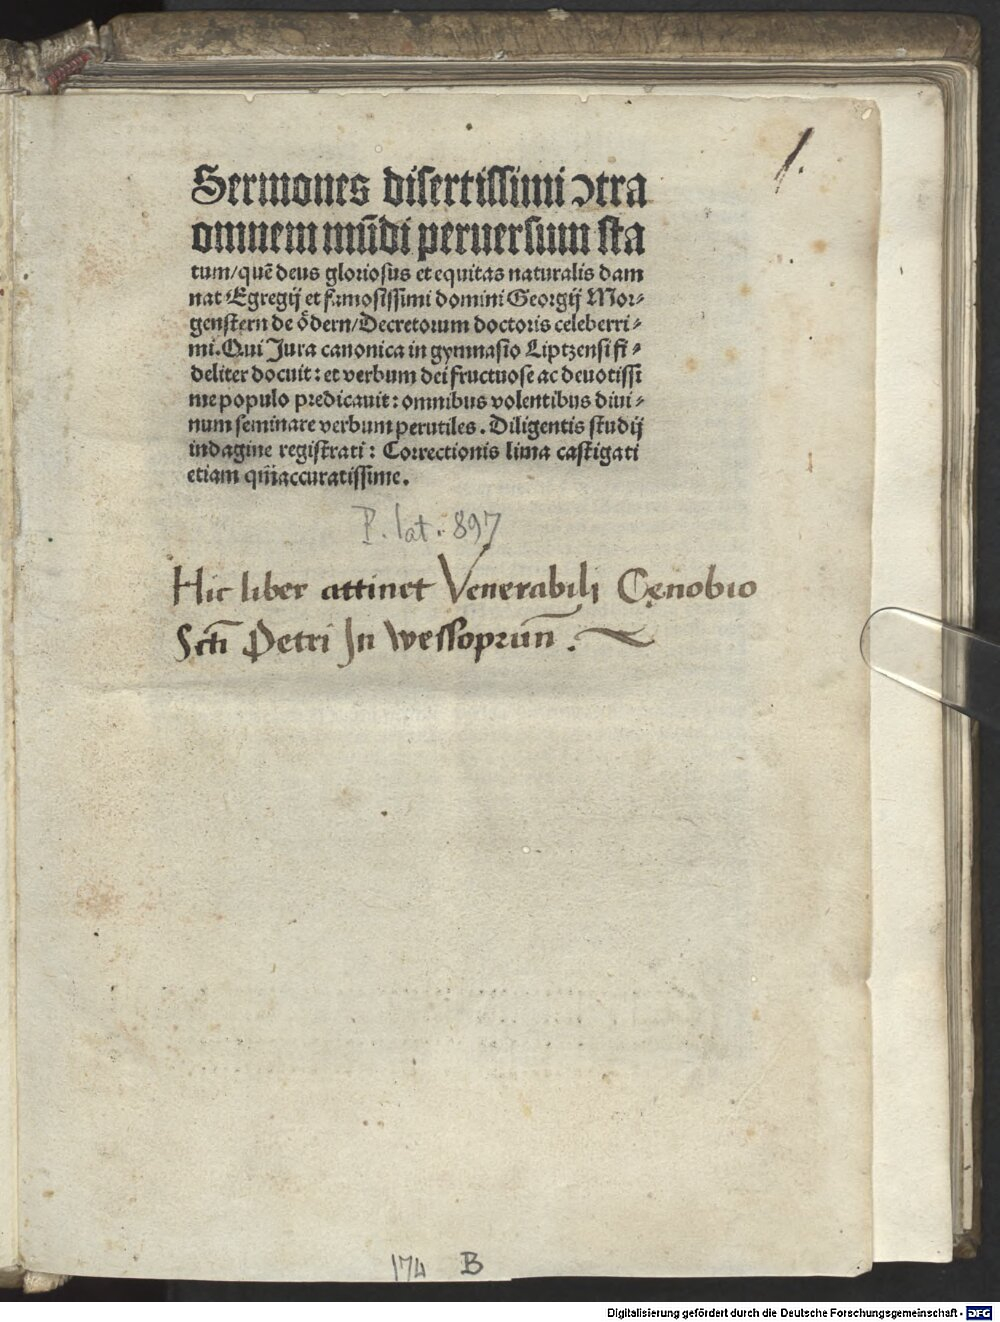 1.
Sermones disertissimi ɔtra
omnem mūdi peruersum sta
tum/quē deus gloriosus et equitas naturalis dam
nat Egregij et famosissimi domini Georgij Mor⸗
genstern de ödern/Decretorum doctoris celeberri⸗
mi. Qui Jura canonica in gymnasio Liptzensi fi⸗
deliter docuit: et verbum dei fructuose ac deuotissi
me populo predicauit: omnibus volentibus diui⸗
num seminare verbum perutiles. Diligentis studij
indagine registrati: Correctionis lima castigati
etiam qm̄accuratissime.
P. lat. 897
Hic liber attinet Venerabili Cęnobio
Scti̅ Petri In Wessoprun̄.
174 B
Digitalisierung gefördert durch die Deutsche Forschungsgemeinschaft - DFG